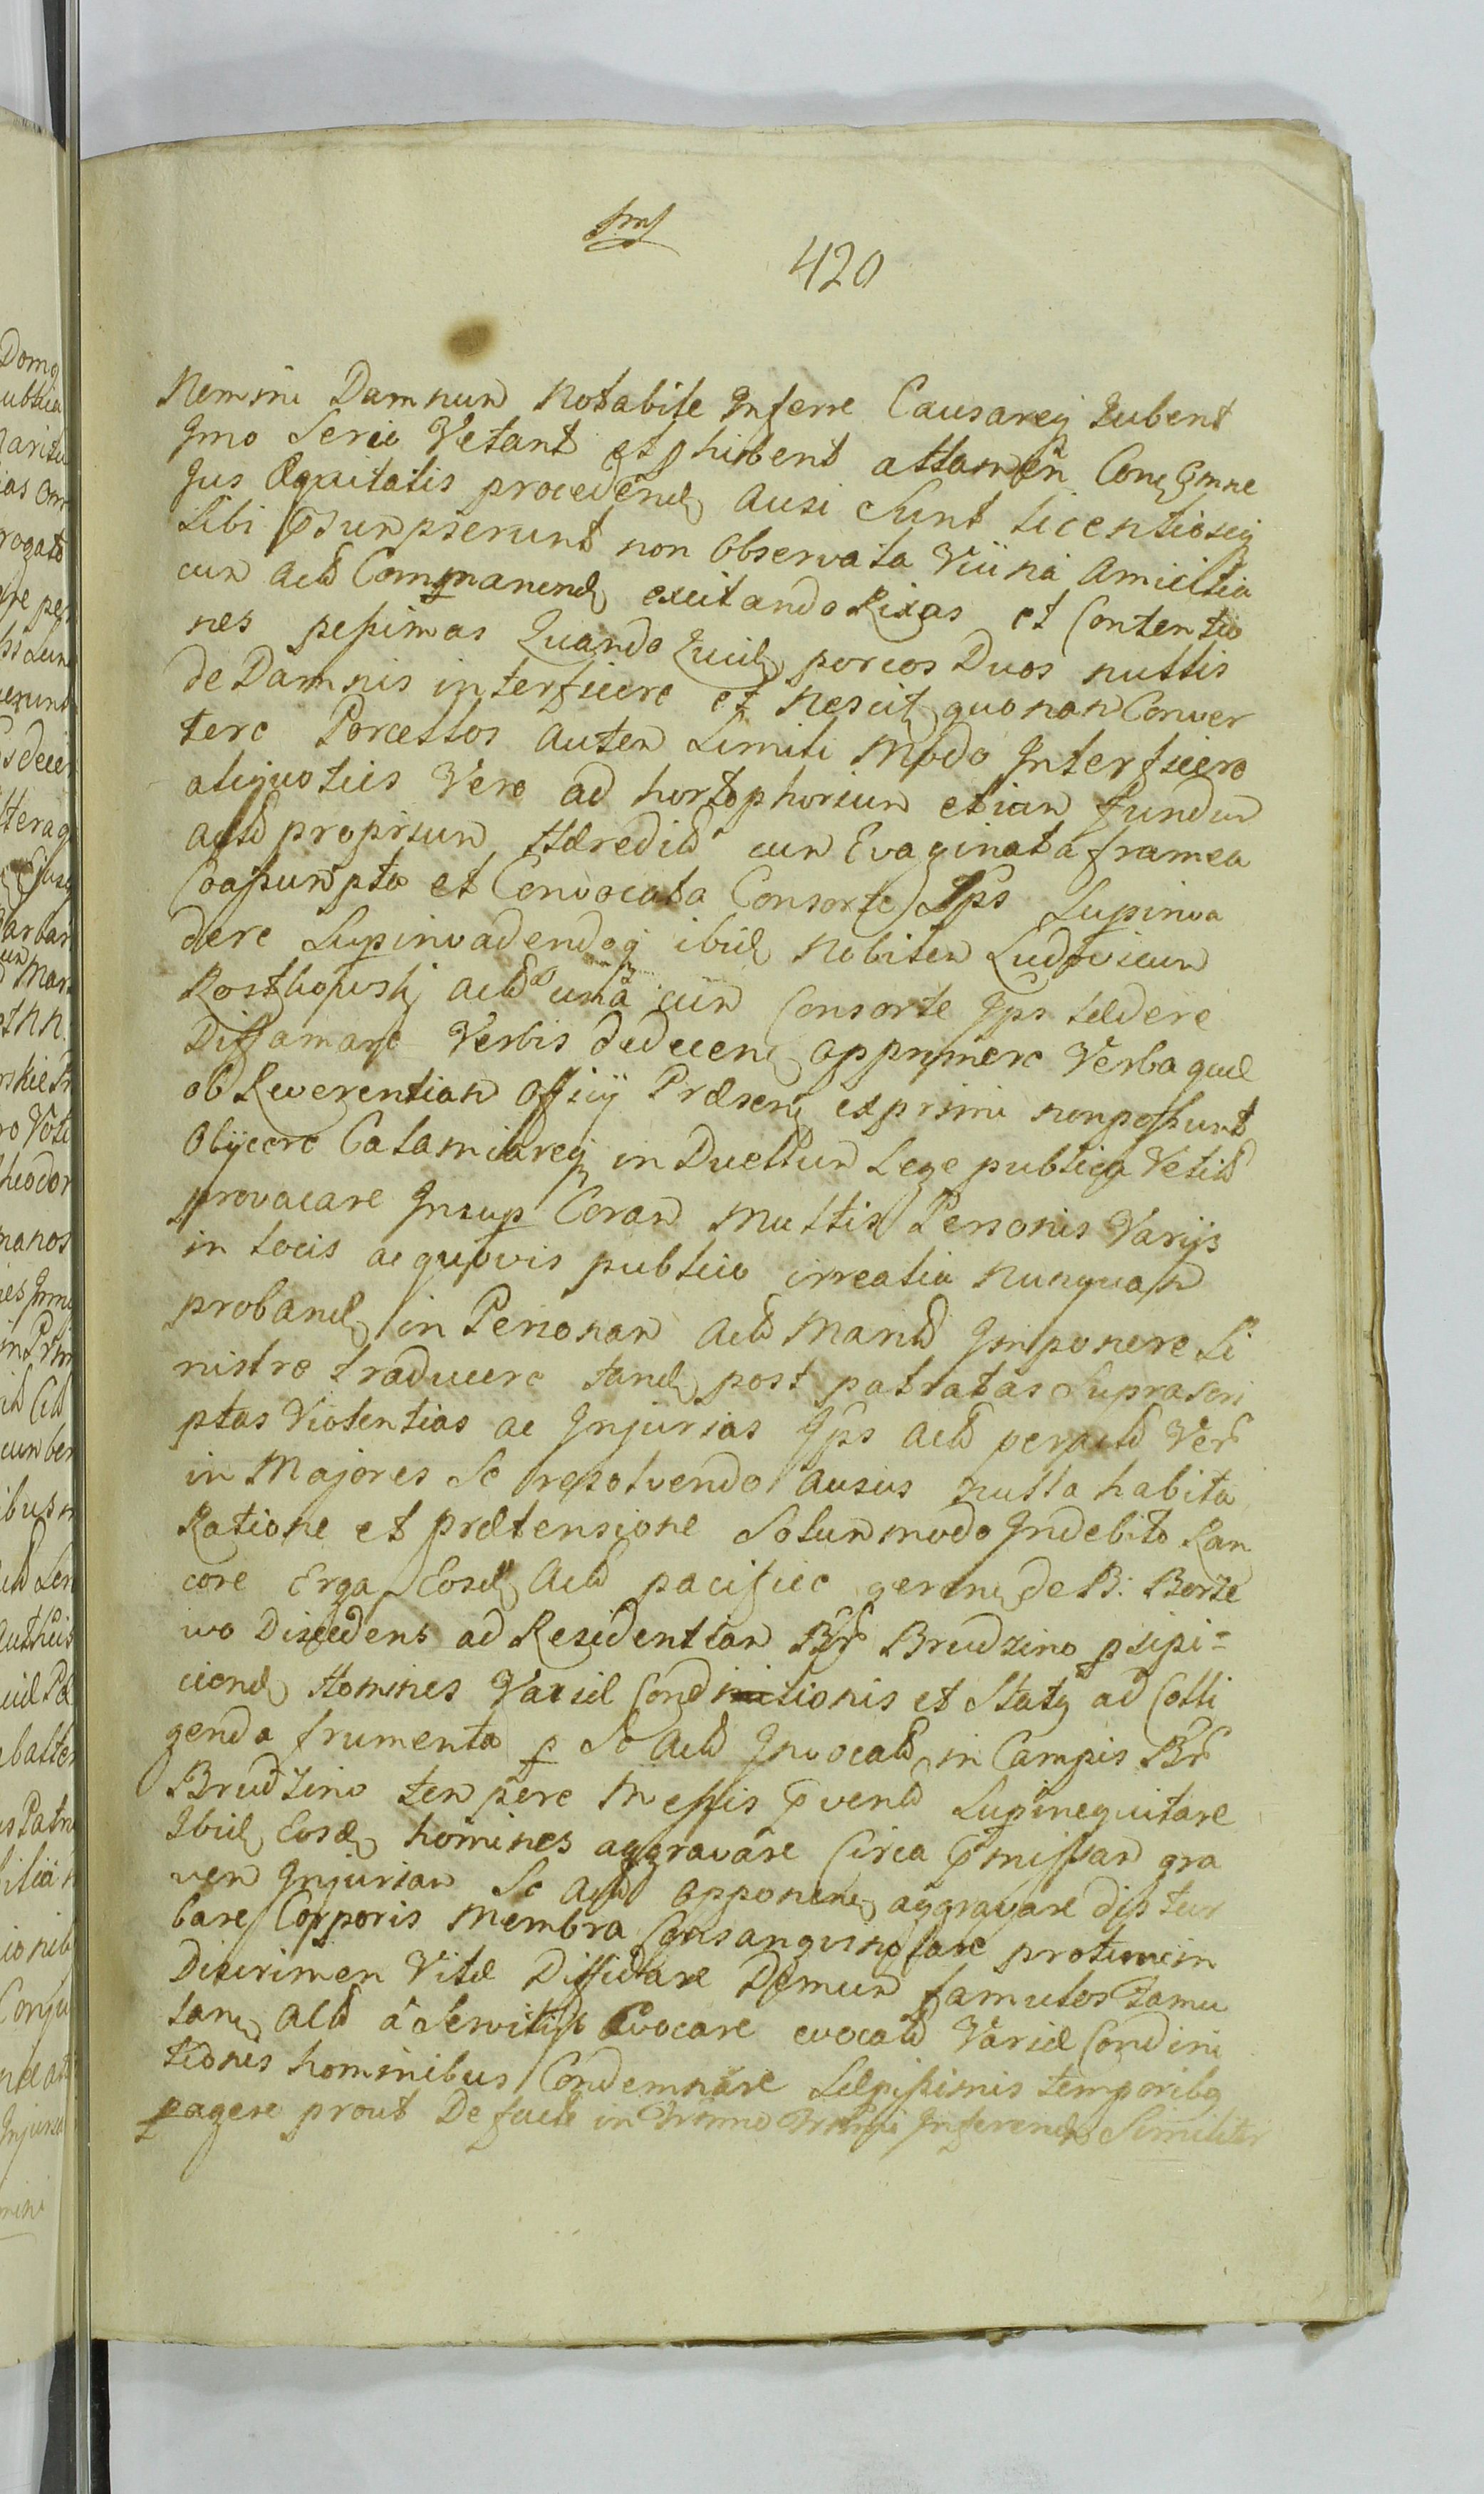 420
Nemini Damnum Notabile Inferre Causareq Jubent
Imo Serio Vetant et phibent attamen Con Omne
Jus Æquitatis procedend ausi Sunt licentioseq
Sibi psumpserunt non Observata Viina Amicitia
cum actb Commanend excitando Rixas et Contentio
nes pessimas Quando porcos Duos nullis
de Damnis interficere et nescit quonan Conver
tere Porcellos autem Simili Modo Interficere
aliquoties Vero ad hortophorium etiam fundum
actb proprium Hæredit cum Evaginata framea
Coassumpta et Convocata Consorte Ips Supinva
dere Supinvadendoq ibid Nobilem Ludovicum
actb una cum Consorte Ips lædere
Diffamare Verbis dedecen opprimere Verba quæ
ob Reverentiam Officij Præsen exprimi non possunt
Obijcere Calamiareq in Duellum Lege publica Vetit
provocare Insup Coram Multis Personis Varijs
in locis ac quovis publico irrealia nunquam
proband in Personam actb Marit Imponere Si
nistre traducere tand post patratas Suprascri
ptas Violentias ac Injurias Ips actb perpet Ver
in Majores Se resolvendo ausus nulla habita
Ratione et prætensione Solummodo Indebito Ran
core Erga Eosd Actb pacifice geren de B: Borze
wo Discedens ad Residentiam Br Brudzino psipi=
ciend Homines Variæ Condinitionis et Statq ad Colli
genda frumenta p Se Actb Invocat in Campis Br
Brudzino tempere Messis pvent Supinequitare
Ibid Eosd homines aggravare Circa pmissam gra
vem Injuriam Se Actb opponen aggravare distur
bare Corporis Membra Consanguinolare protunc in
Discrimen Vitæ Diffidare Demum famulos famu
lan actb a Servitijs Evocare evocatb Variæ Condini
tionis hominibus Condemnare Sæpissimis temporibq
pagere prout De facto in Inferend Similiter